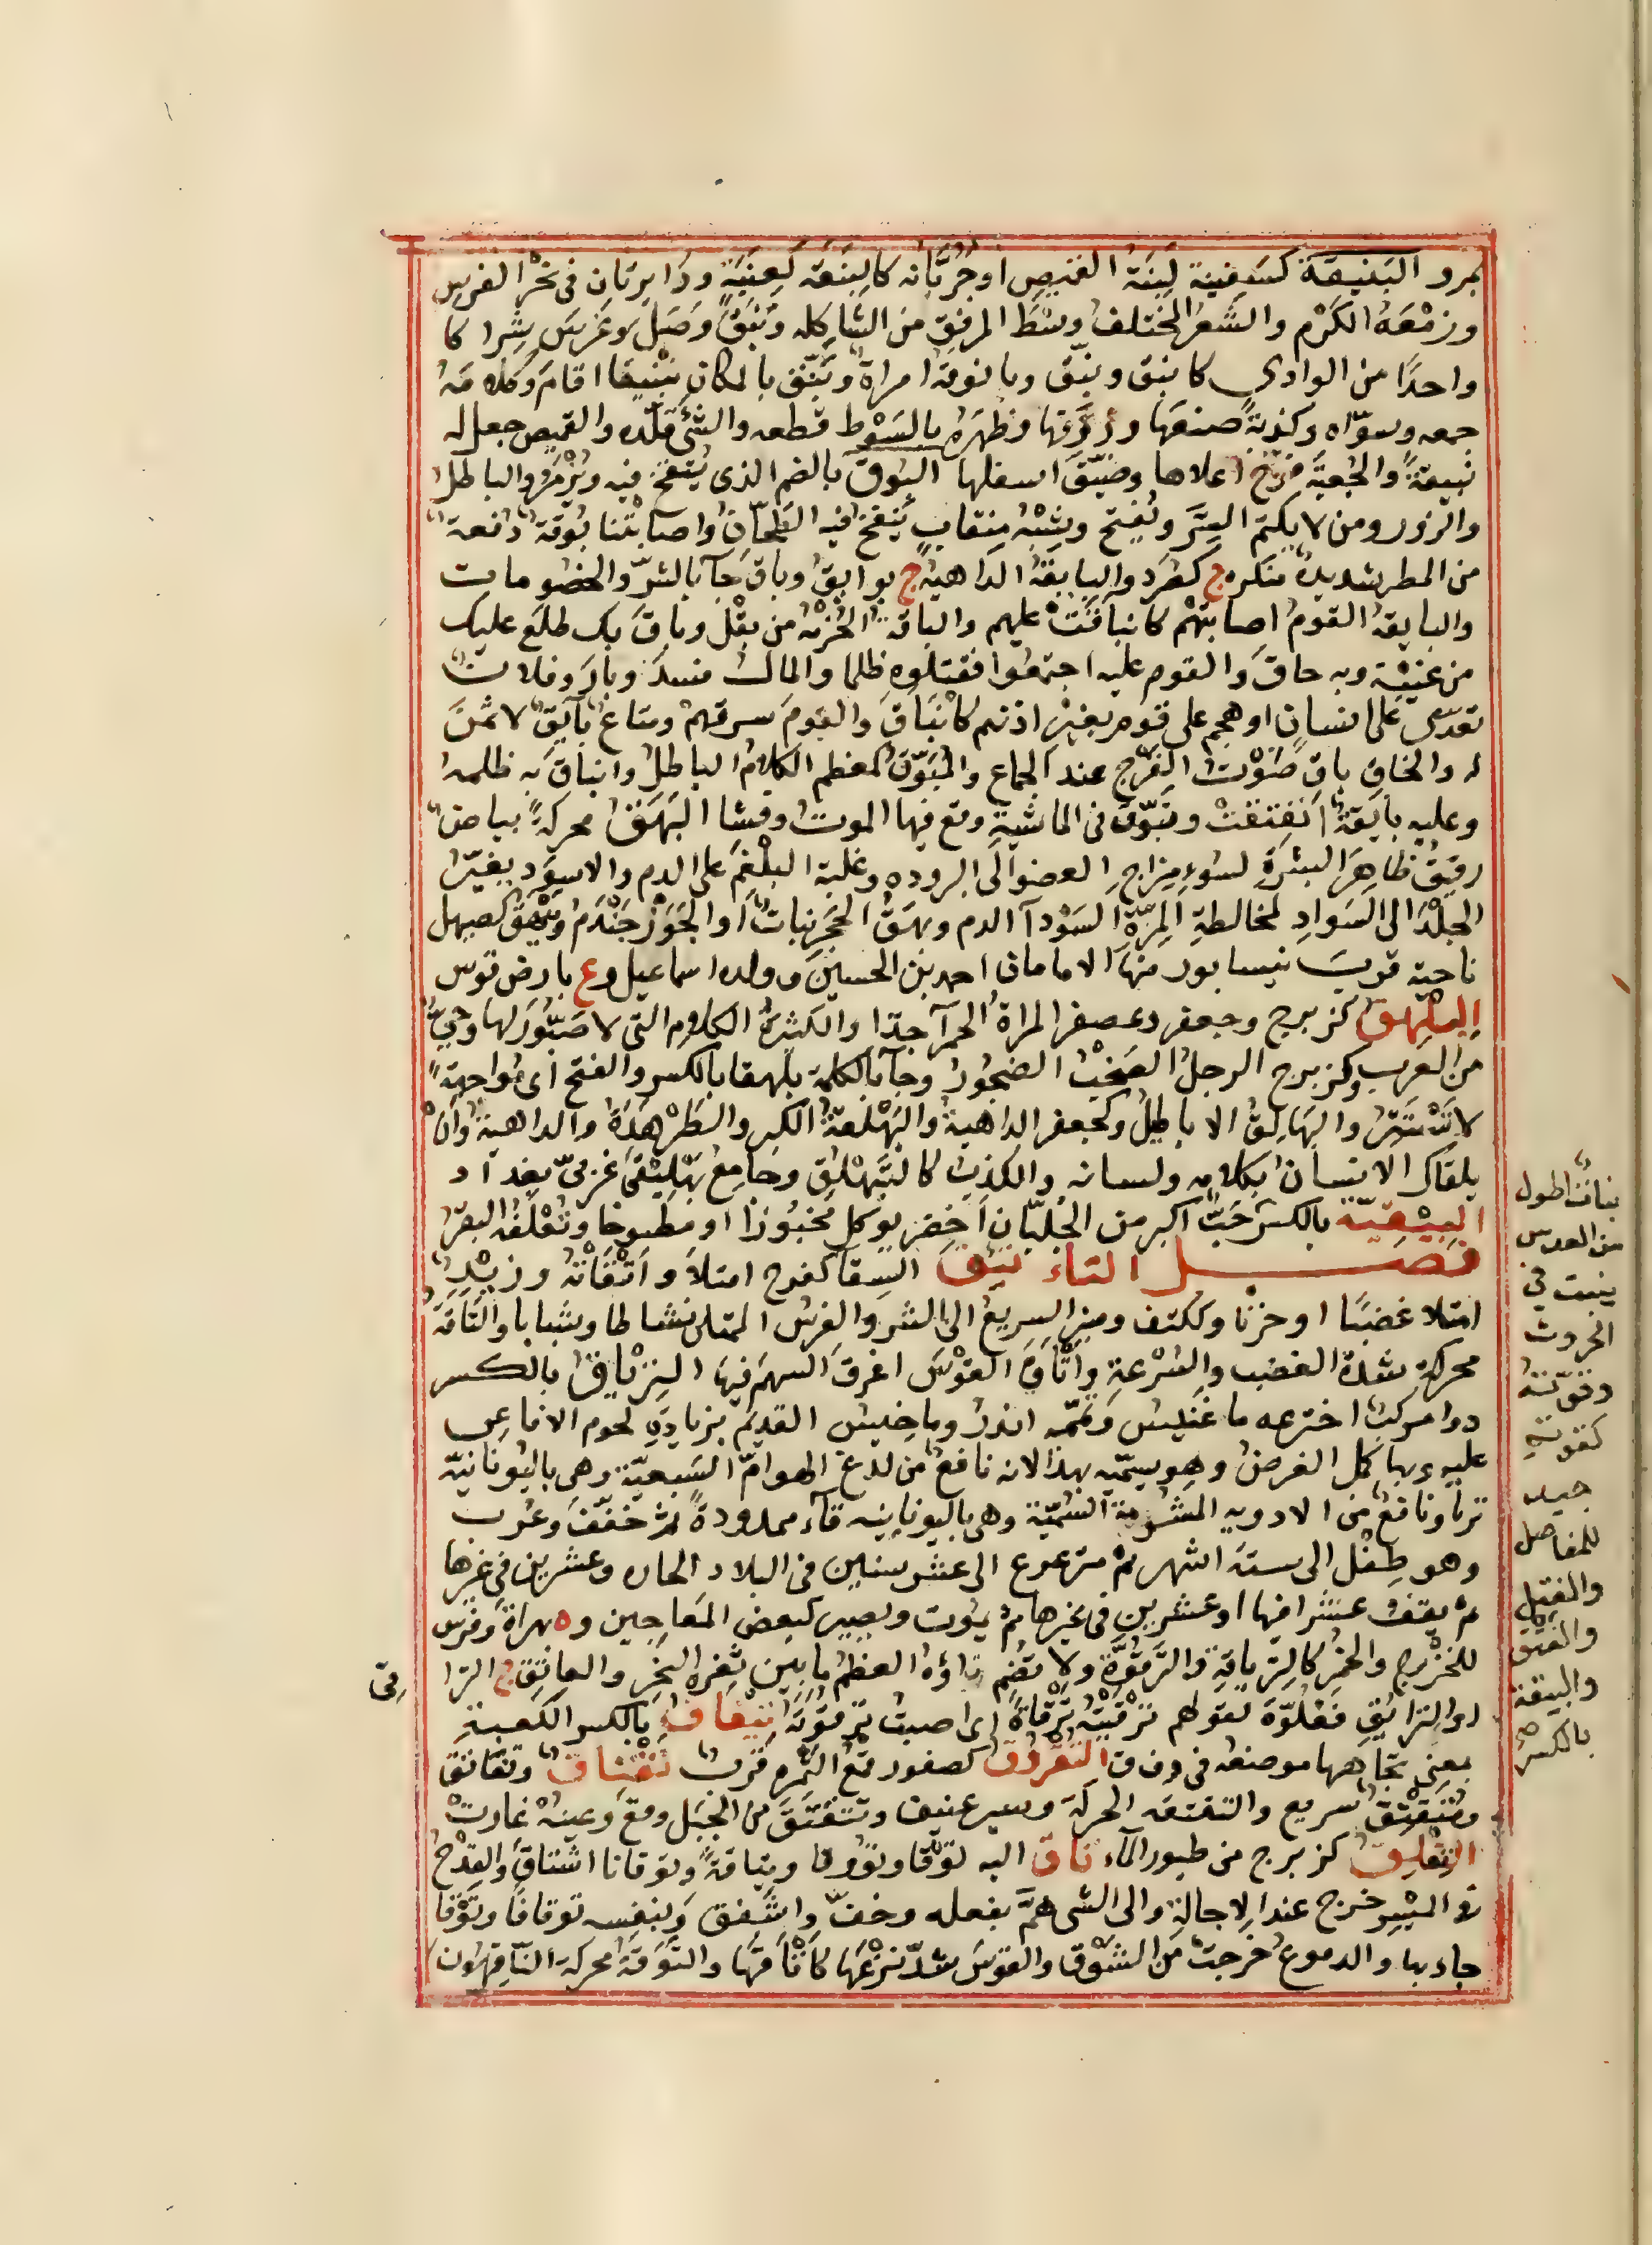 كمرد البَنيقة كسَفينة لِبنَة القميص او جُرُبّانه كالبنَقة كعِنَبَة ودَايرتان في نحْر الفرس
وزمْعَة الكَرْم والشَعر المختلف وسْطَ المرفق من الشاكله وبَنَقَ وَصَلَ وغَرس شِرا كا
واحدًا من الوادى كابنق وبنّق وبانوقة امراة وبنّق بالمكان تبنيقا اقامَ وكلامَهُ
جمعه وسوّاه وكذبةً صنعَها وزوّقها وظهرَه بالسَوْط قطعه والشئ قلّده والقميص جعل له
نبيقةً والجُعبَة فرّج اعلاها وضيّق اسفلها البُوق بالضم الذى يُنفخ فيه ويُزْمَرُ والباطلُ
والزور ومن لا يكتم السِرَّ ويُفتح وشِبْهُ مِنقابٍ يَنفخ فيه الطحّان واصابتْنا بُوقَة دُفعة
من المطر شديدة منكره ج كصُرَد والبايقةُ الداهيةُ ج بوايق وباق جآ بالشرّ والخصُومات
والبايقة القومُ اصابتهُم كانباقَتْ عليهم والباقة الحُزمَة من بقْل وباقَ بك طلع عليك
من غيْبَة وبه حاقَ والقوم عليه اجتمعُوا فقتلوه ظلما والمالُ فسدَ وبارَ وفلانٌ
تعدّى على انسانٍ او هجم على قومٍ بغير اذنهم كانْبَاقَ والقومَ سرقهمْ ومتاعٌ بآيقٌ لا ثمنَ
له والخاقِ باقِ صَوْت الفَرْج عند الجماع والمُبَوَّق كمعظم الكلام الباطل وانباق به ظلمهُ
وعليه بايقةٌ انفتقتْ وتبَوَّق فى الماشية وقع فيها الموتُ وفشا البَهَقُ محركةً بياضٌ
رقيقٌ ظاهِرَ البَشرَةِ لسُوء مِزاجِ العضو الى البروده وغلبة البلْغَم على الدم والاسوَد يغيّرُ
الجلْدَ الى السَوادِ لمخالطة المِرّةِ السَوْدآ الدم وبهَقُ الحَجَر نباتٌ او الجَوْز جَنْدُم وبَيْهَق كصيهل
ناحية قربَ نيسابور منها الامامان احمد بن الحسين وولده اسماعيل وع بارض قوس
البِلهقُ كزبرج وجعفر وعصفر المراة الحمرآ جدّا والكثيرة الكلام التى لا صَيُّورَ لها وحىٌّ
من العرب وكزبرج الرجلُ الصَخبُ الضجُور وجآ بالكلمة بلهقا بالكسر والفتح اى مُواجهَةً
لا تَسْتَتِرُ والبَهالِقُ الاباطيلُ وكجعفر الداهية والبَهْلَقَةُ الكبر والطَرْهَذَةُ والداهيةُ واَنْ
يلقاك الانسانُ بكلامه ولسانه والكذبُ كالتبَهْلُق وجامعُ بَهْلِيْقَى غربىّ بغدآد
البِيْقيَّة بالكسر حَبٌّ اكبر من الجُلبّان اخضر يوكل مخبُوزًا او مطبوخا وتُعْلفُه البقرُ
فصل التاء تَئِقَ السقا كفرح امتلاَ واَتْقَأتُهُ وزيدٌ
امتلا غضبَا او حزنا وككتف ومنبر السريعُ الى الشر والفرسُ الممتلئ نشاطا وشبابا والتَاقَةُ
محركة شدة الغضب والسُرْعةِ واَتْأقَ القوْسَ اغرقَ السهم فيها التِرْيَاقُ بالكسر
دوا مركبٌ اخترعه ماغْنيسُ وتمّمه اندرُ وماخيسُ القديم بزيادةِ لحوم الافاعِى
عليه وبها كمل الغرضُ وهو مسمّيه بهذا لانه نافعٌ من لدغ الهوامّ السَبعيّة وهى باليُونانيّة
تريا ونافعٌ من الادويه المشروبة السُمّيّة وهى باليونانيه قآء ممدودة ثم خفّفَ وعُرب
وهو طِفل الى ستة اشهر ثم مترعرع الى عشر سنين فى البلاد الحاره وعشرين فى غيرها
ثم يقف عشرا فيها او عشرين فى غيرها ثم يموت ويصير كبعض المَعاجِين وه بهراة وفرس
للخزرج والخمر كالتِرياقة والتَرقُوَة ولا تُضَم تاؤه العظم ما بين ثغره النحر والعاتق ج الترا
قِى
او الترايقِ فَعْلُوَة لقولهم تَرْقَيْتُهُ تَرْقاةً اى اصبتُ ترقُوَتَه تِيْفاق بالكسر الكعبة
بمعنى تجاهها موضعه فى وف ق التفروق كصفور قمع التمره قربٌ تقتاق وتقاتق
ومُتَقْتِق سريع والتقتقه الحركة وسير عنيف وتَتَقْتَقَ من الجَبَل وقعَ وعينُه غارتْ
التقلِق كزبرج من طيور المآء تاق اليه تَوْقا وتوُوقا وتياقة وتوقانا اشتاق والقِدْحُ
فى الميْسِر خرج عند الاجالة والى الشى همَّ بفعله وخفّ واشفق وبنفسه توقانا وتَوْقا
جاد بها والدموعُ خرجتْ من الشَوْق والقوسَ شدّ نزْعَها كاَتاقَها والتَوَقَةُ محركة النّاقهون
نباتٌ اطول
من العدس
ينبت فى
الحروث
وقوّته
كقوّته
جيد
للمفاصل
والفتل
والفتق
والبيقة
بالكسر